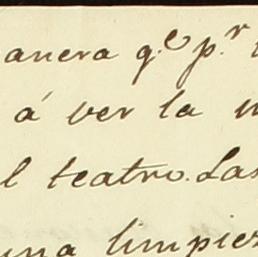 anera q.e p.r
á ver la
l teatro. Las
una limpiez